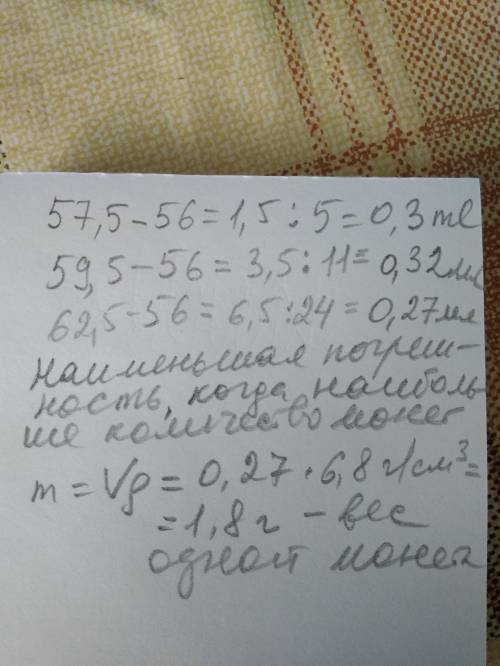 57,5-56=1,5:5=0,3ml
59,5-56=3,5:11=0,32мл
62,5-56=6,5:24=0,27мл
Наименьшая погреш-
ность, когда наиболь
шее количество монет
m=Vρ=0,27·6,8г/см³=
=1,8г - вес
одной монеты